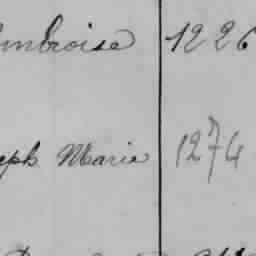 Ambroise 1226
eph Marie 1274